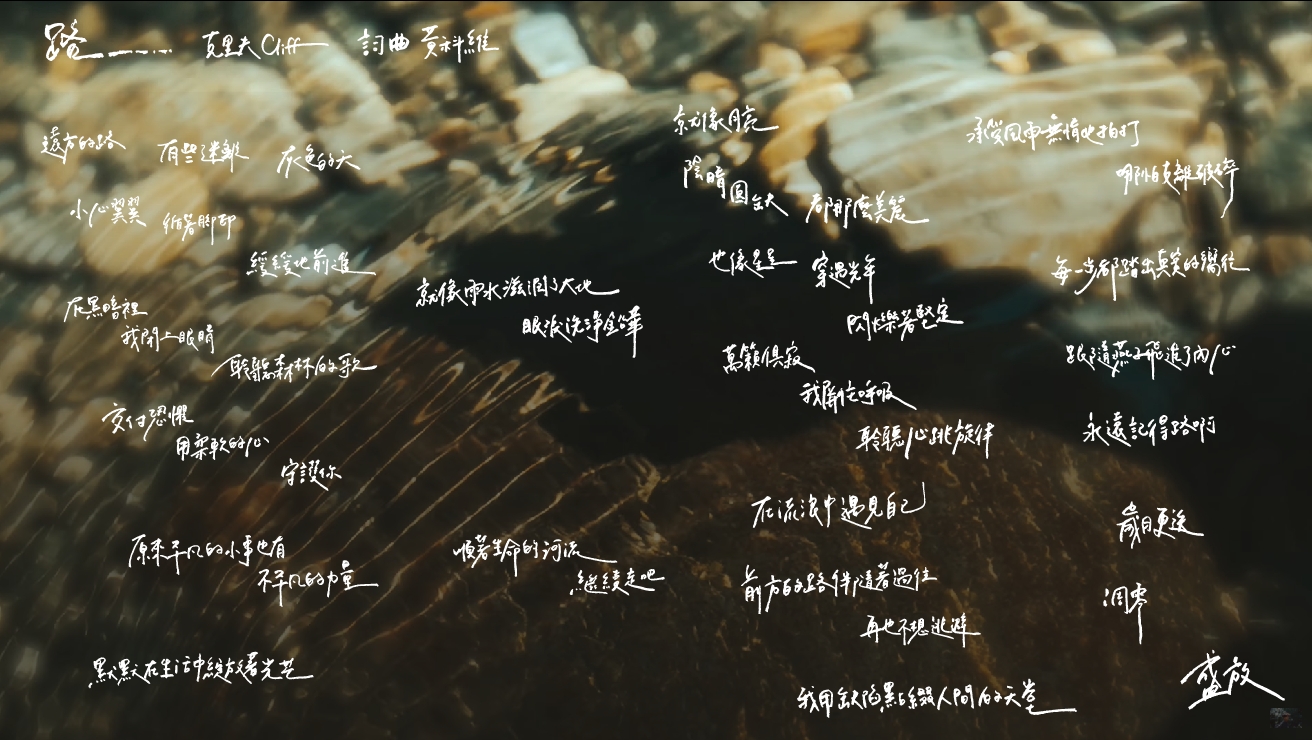 路
克里夫Cliff 詞曲 黃科維
遠方的路 有些迷離 灰色的天
小心翼翼 循著腳印
緩緩地前進
在黑暗裡
我閉上眼睛
聆聽森林的歌
交付恐懼
用柔軟的心
守護你
原來平凡的小事也有
不平凡的力量
默默在生活中綻放著光芒
就像雨水滋潤了大地
眼淚洗淨鉛華
順著生命的河流
繼續走吧
就像月亮
陰晴
圓缺
都那麼美麗
也像星星
穿過光年
閃爍著堅定
萬籟俱寂
我屏住呼吸
聆聽心跳旋律
在流浪中遇見自己
前方的路伴隨著過往
再也不想逃避
我用缺陷點綴人間的天堂
承受風雨無情地拍打
哪怕支離破碎
每一步都踏出真實的嚮往
跟隨燕子飛進了內心
永遠記得路啊
歲月更迭
凋零
盛放